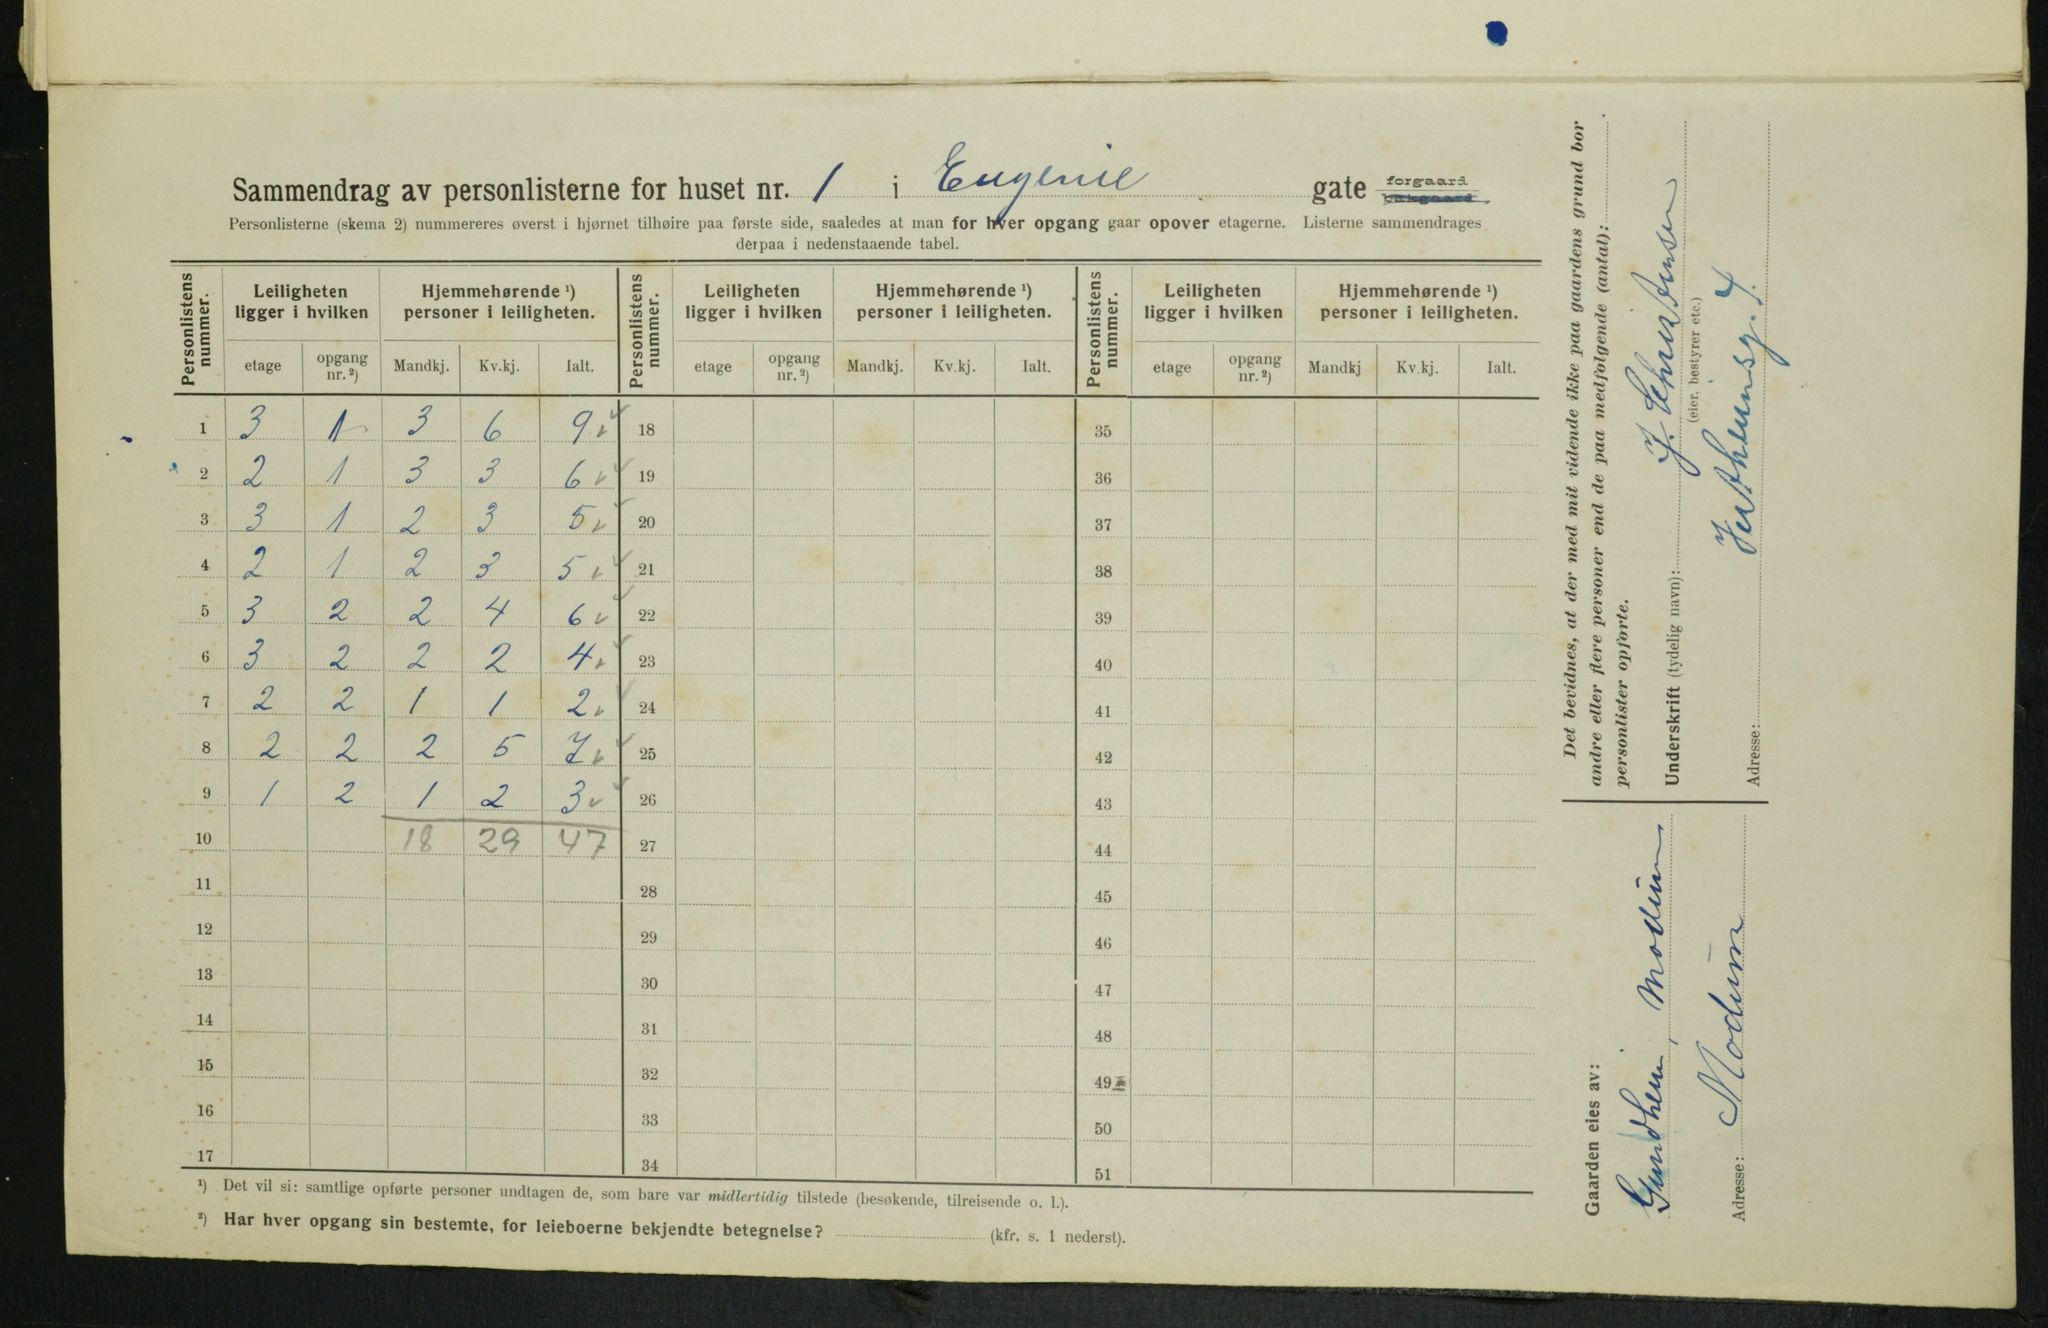 Sammendrag av personlisterne for huset nr. 1 i Eugenie gate forgaard bakgaard
Personlisterne (skema 2) nummereres øverst i hjørnet tilhøire paa første side, saaledes at man for hver opgang gaar opover etagerne. Listerne sammendrages
derpaa i nedenstaaende tabel.
Personlistens nummer. Leiligheten ligger i hvilken Hjemmehørende ¹) personer i leiligheten. Personlistens nummer. Leiligheten ligger i hvilken Hjemmehørende ¹) personer i leiligheten. Personlistens nummer. Leiligheten ligger i hvilken Hjemmehørende ¹) personer i leiligheten.
etage opgang nr. ²) Mandkj. Kv.kj. Ialt. etage opgang nr. ²) Mandkj. Kv.kj. Ialt. etage opgang nr. ²) Mandkj Kv.kj. Ialt.
1 3 1 3 6 9 ✓ 18 35
2 2 1 3 3 6 ✓ 19 36
3 3 1 2 3 5 ✓ 20 37
4 2 1 2 3 5 ✓ 21 38
5 3 2 2 4 6 ✓ 22 39
6 3 2 2 2 4 ✓ 23 40
7 2 2 1 1 2 ✓ 24 41
8 2 2 2 5 7 ✓ 25 42
9 1 2 1 2 3 ✓ 26 43
10 18 29 47 27 44
11 28 45
12 29 46
13 30 47
14 31 48
15 32 49
16 33 50
17 34 51
¹) Det vil si: samtlige opførte personer undtagen de, som bare var midlertidig tilstede (besøkende, tilreisende o. l.).
²) Har hver opgang sin bestemte, for leieboerne bekjendte betegnelse? (kfr. s. 1 nederst).
Det bevidnes, at der med mit vidende ikke paa gaardens grund bor
andre eller flere personer end de paa medfølgende (antal):
personlister opførte.
Underskrift (tydelig navn):
(eier, bestyrer etc.)
Adresse:
Gaarden eies av:
Modum
Adresse: Modum